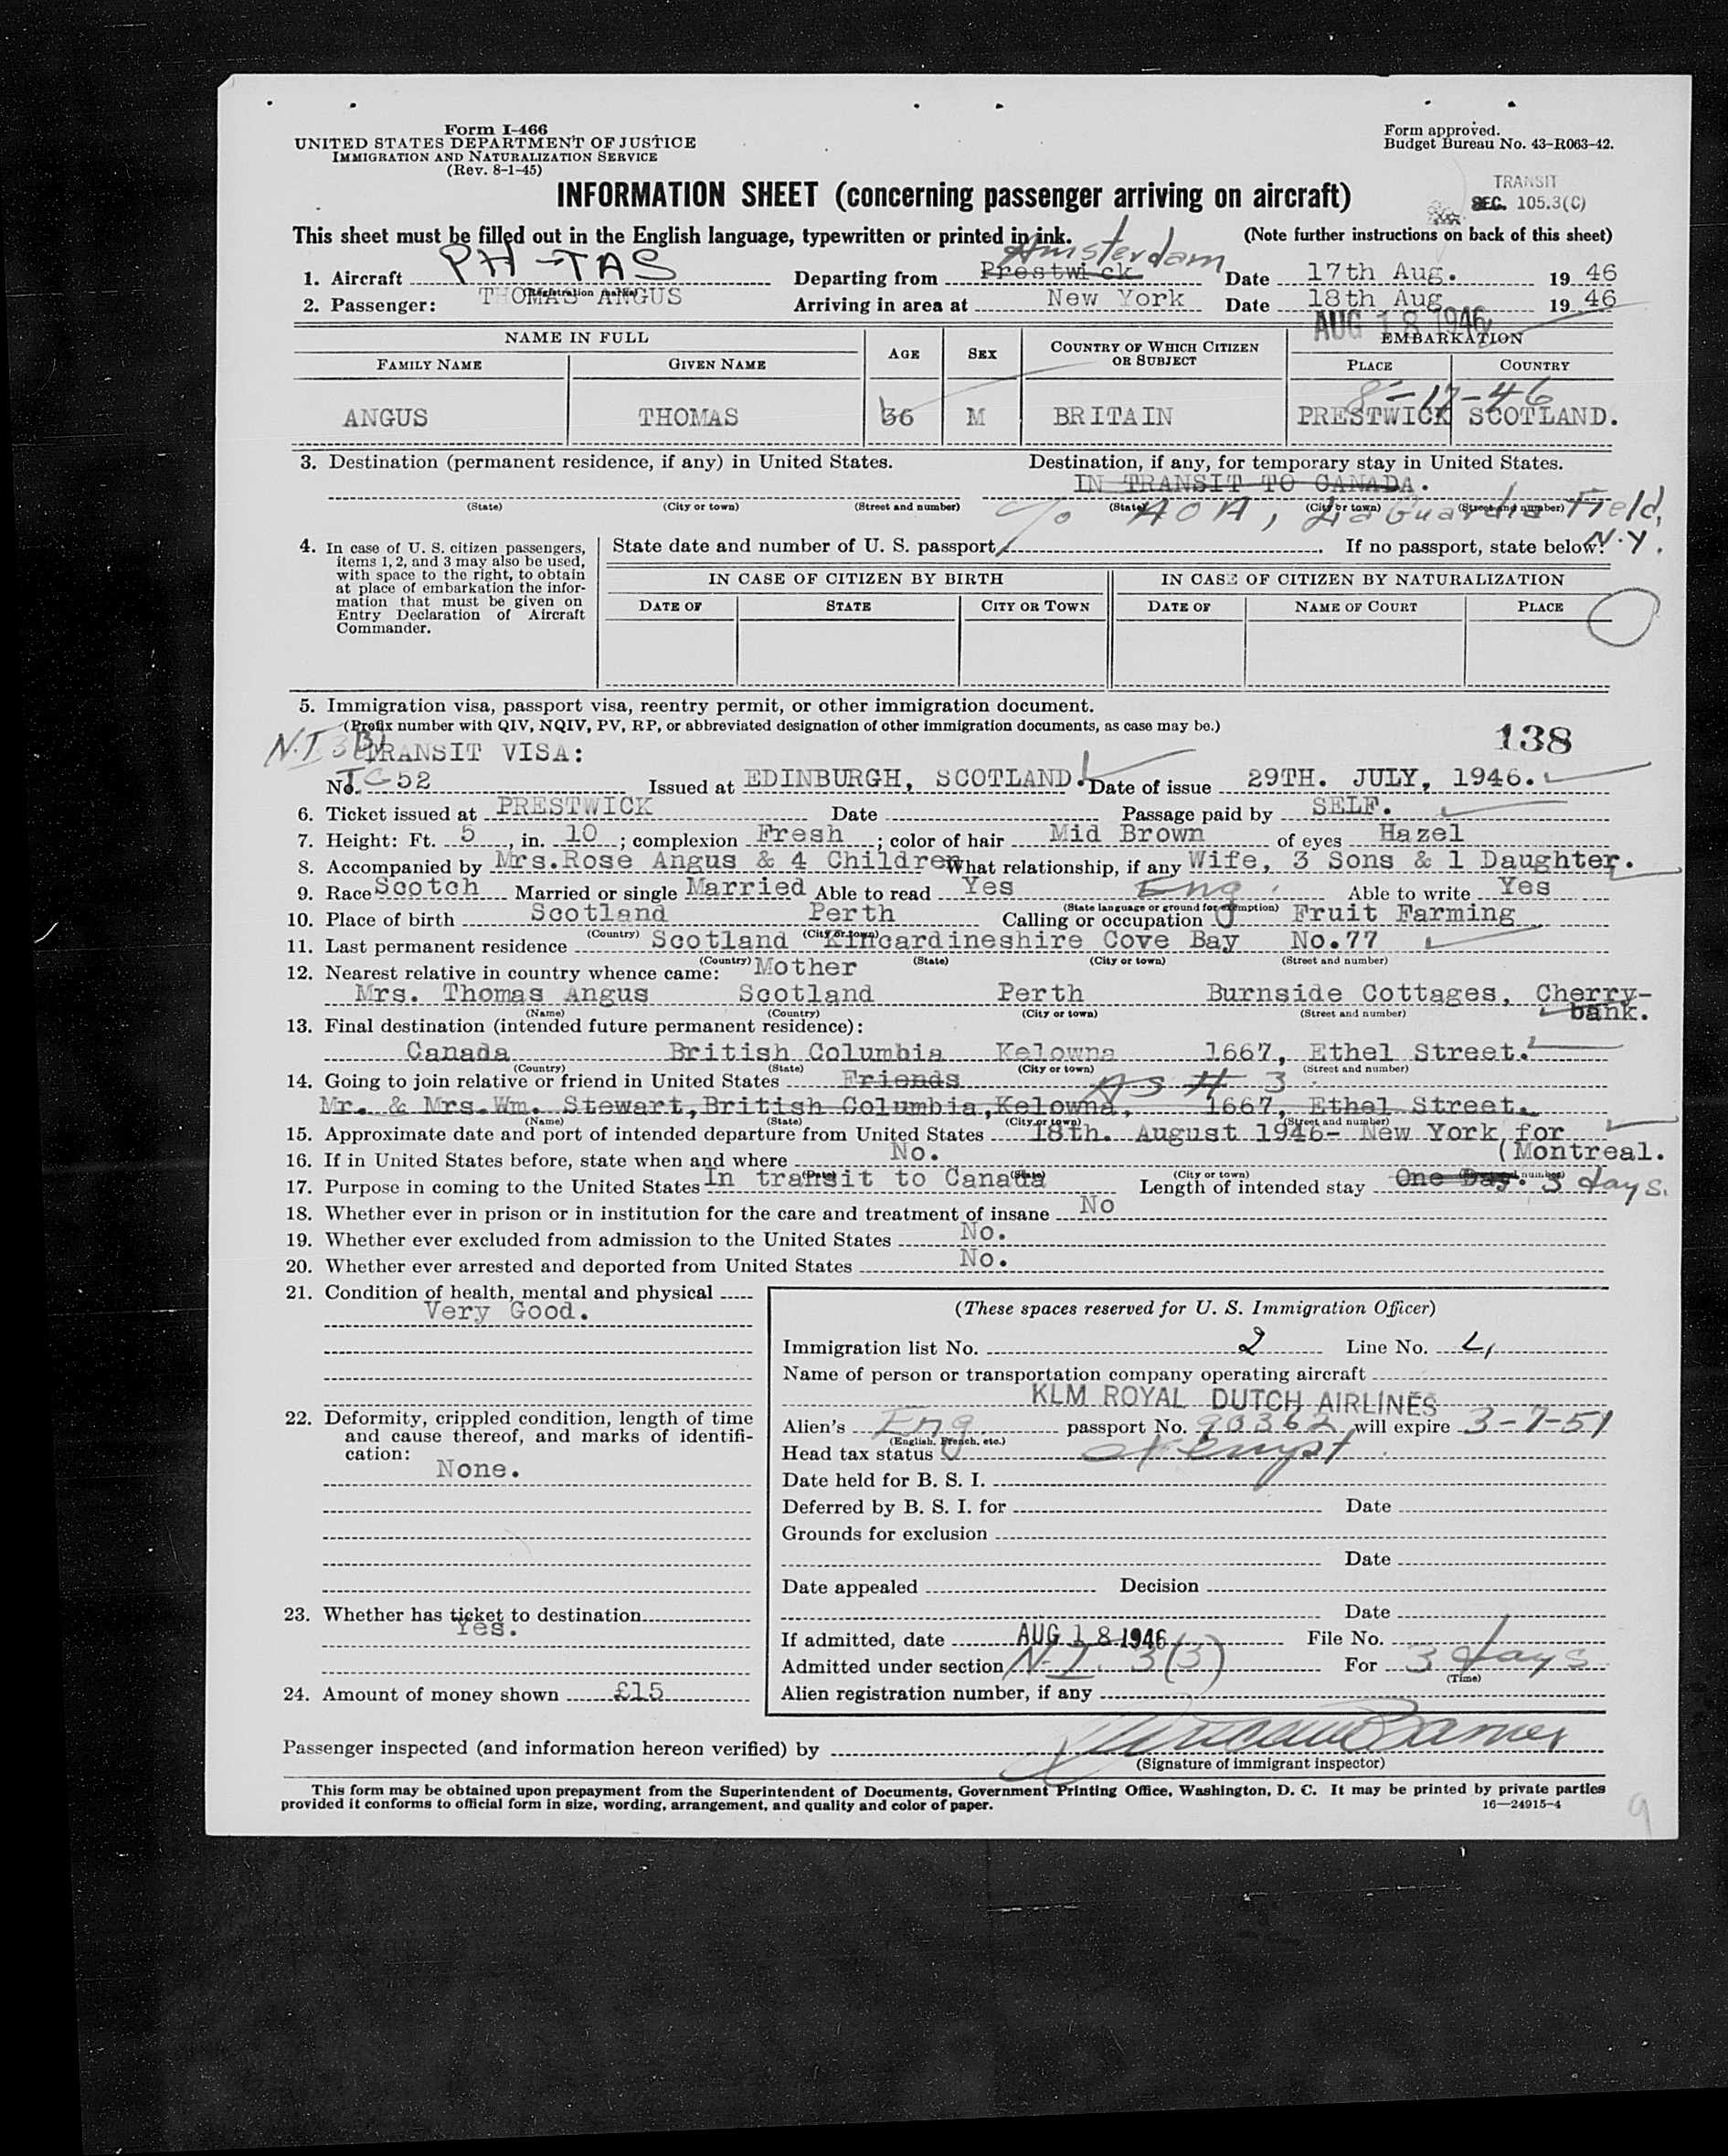 Form I-466
UNITED STATES DEPARTMENT OF JUSTICE
IMMIGRATION AND NATURALIZATION SERVICE
(Rev. 8-1-45)
Form approved.
Budget Bureau No. 43-R063-42.
INFORMATION SHEET (concerning passenger arriving on aircraft)
TRANSIT
SEC. 105.3(C)
This sheet must be filled out in the English language, typewritten or printed in ink.
(Note further instructions on back of this sheet)
Amsterdam
1. Aircraft PH-TAS Departing from Prestwick Date 17th Aug. 19 46
(Registration marks)
2. Passenger: THOMAS ANGUS Arriving in area at New York Date 18th Aug 19 46
AUG 18 1946
NAME IN FULL AGE SEX COUNTRY OF WHICH CITIZEN OR SUBJECT EMBARKATION
FAMILY NAME GIVEN NAME PLACE COUNTRY
8-17-46
ANGUS THOMAS 36 M BRITAIN PRESTWICK SCOTLAND.
3. Destination (permanent residence, if any) in United States. Destination, if any, for temporary stay in United States.
IN TRANSIT TO CANADA.
(State) (City or town) (Street and number) (State) (City or town) (Street and number)
c/o AOA, LaGuardia Field, N.Y.
4. In case of U. S. citizen passengers, items 1, 2, and 3 may also be used, with space to the right, to obtain at place of embarkation the information that must be given on Entry Declaration of Aircraft Commander.
State date and number of U. S. passport If no passport, state below:
IN CASE OF CITIZEN BY BIRTH IN CASE OF CITIZEN BY NATURALIZATION
DATE OF STATE CITY OR TOWN DATE OF NAME OF COURT PLACE
5. Immigration visa, passport visa, reentry permit, or other immigration document.
(Prefix number with QIV, NQIV, PV, RP, or abbreviated designation of other immigration documents, as case may be.)
138
N.I 3(3) TRANSIT VISA:
No. TC 52 Issued at EDINBURGH, SCOTLAND. Date of issue 29TH. JULY, 1946.
6. Ticket issued at PRESTWICK Date Passage paid by SELF.
7. Height: Ft. 5, in. 10; complexion Fresh; color of hair Mid Brown of eyes Hazel
8. Accompanied by Mrs.Rose Angus & 4 Children What relationship, if any Wife, 3 Sons & 1 Daughter.
9. Race Scotch Married or single Married Able to read Yes Eng. Able to write Yes
(State language or ground for exemption)
10. Place of birth Scotland Perth Calling or occupation Fruit Farming
(Country) (City or town)
11. Last permanent residence Scotland Kincardineshire Cove Bay No.77
(Country) (State) (City or town) (Street and number)
12. Nearest relative in country whence came: Mother
Mrs. Thomas Angus Scotland Perth Burnside Cottages, Cherry-
bank.
(Name) (Country) (City or town) (Street and number)
13. Final destination (intended future permanent residence):
Canada British Columbia Kelowna 1667, Ethel Street.
(Country) (State) (City or town) (Street and number)
14. Going to join relative or friend in United States Friends AS # 3
Mr. & Mrs.Wm. Stewart,British Columbia,Kelowna, 1667, Ethel Street.
(Name) (State) (City or town) (Street and number)
15. Approximate date and port of intended departure from United States 18th. August 1946- New York for
(Montreal.
16. If in United States before, state when and where No.
(Date) (State) (City or town) (Street and number)
17. Purpose in coming to the United States In transit to Canada Length of intended stay One Day. 3 days.
18. Whether ever in prison or in institution for the care and treatment of insane No
19. Whether ever excluded from admission to the United States No.
20. Whether ever arrested and deported from United States No.
21. Condition of health, mental and physical
Very Good.
22. Deformity, crippled condition, length of time and cause thereof, and marks of identification:
None.
23. Whether has ticket to destination
Yes.
24. Amount of money shown £15
(These spaces reserved for U. S. Immigration Officer)
Immigration list No. 2 Line No. 4
Name of person or transportation company operating aircraft
KLM ROYAL DUTCH AIRLINES
Alien's Eng. passport No. 90362 will expire 3-7-51
(English, French, etc.)
Head tax status exempt
Date held for B. S. I.
Deferred by B. S. I. for Date
Grounds for exclusion
Date
Date appealed Decision
Date
If admitted, date AUG 18 1946 File No.
Admitted under section N.I. 3(3) For 3 days
(Time)
Alien registration number, if any
Passenger inspected (and information hereon verified) by
(Signature of immigrant inspector)
This form may be obtained upon prepayment from the Superintendent of Documents, Government Printing Office, Washington, D. C. It may be printed by private parties
provided it conforms to official form in size, wording, arrangement, and quality and color of paper.
16—24915-4
9